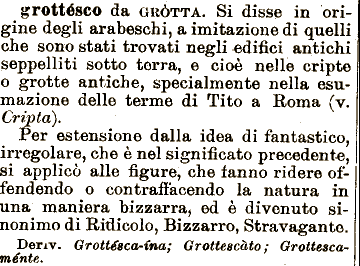 grottésco da GRÒTTA. Si disse in ori-
gine degli arabeschi, a imitazione di quelli
che sono stati trovati negli edifici antichi
seppelliti sotto terra, e cioè nelle cripte
o grotte antiche, specialmente nella esu-
mazione delle terme di Tito a Roma (v.
Cripta).
Per estensione dalla idea di fantastico,
irregolare, che è nel significato precedente,
si applicò alle figure, che fanno ridere of-
fendendo o contraffacendo la natura in
una maniera bizzarra, ed è divenuto si-
nonimo di Ridicolo, Bizzarro, Stravagante.
DERIV. Grottésca-ína; Grottescàto; Grottesca-
ménte.